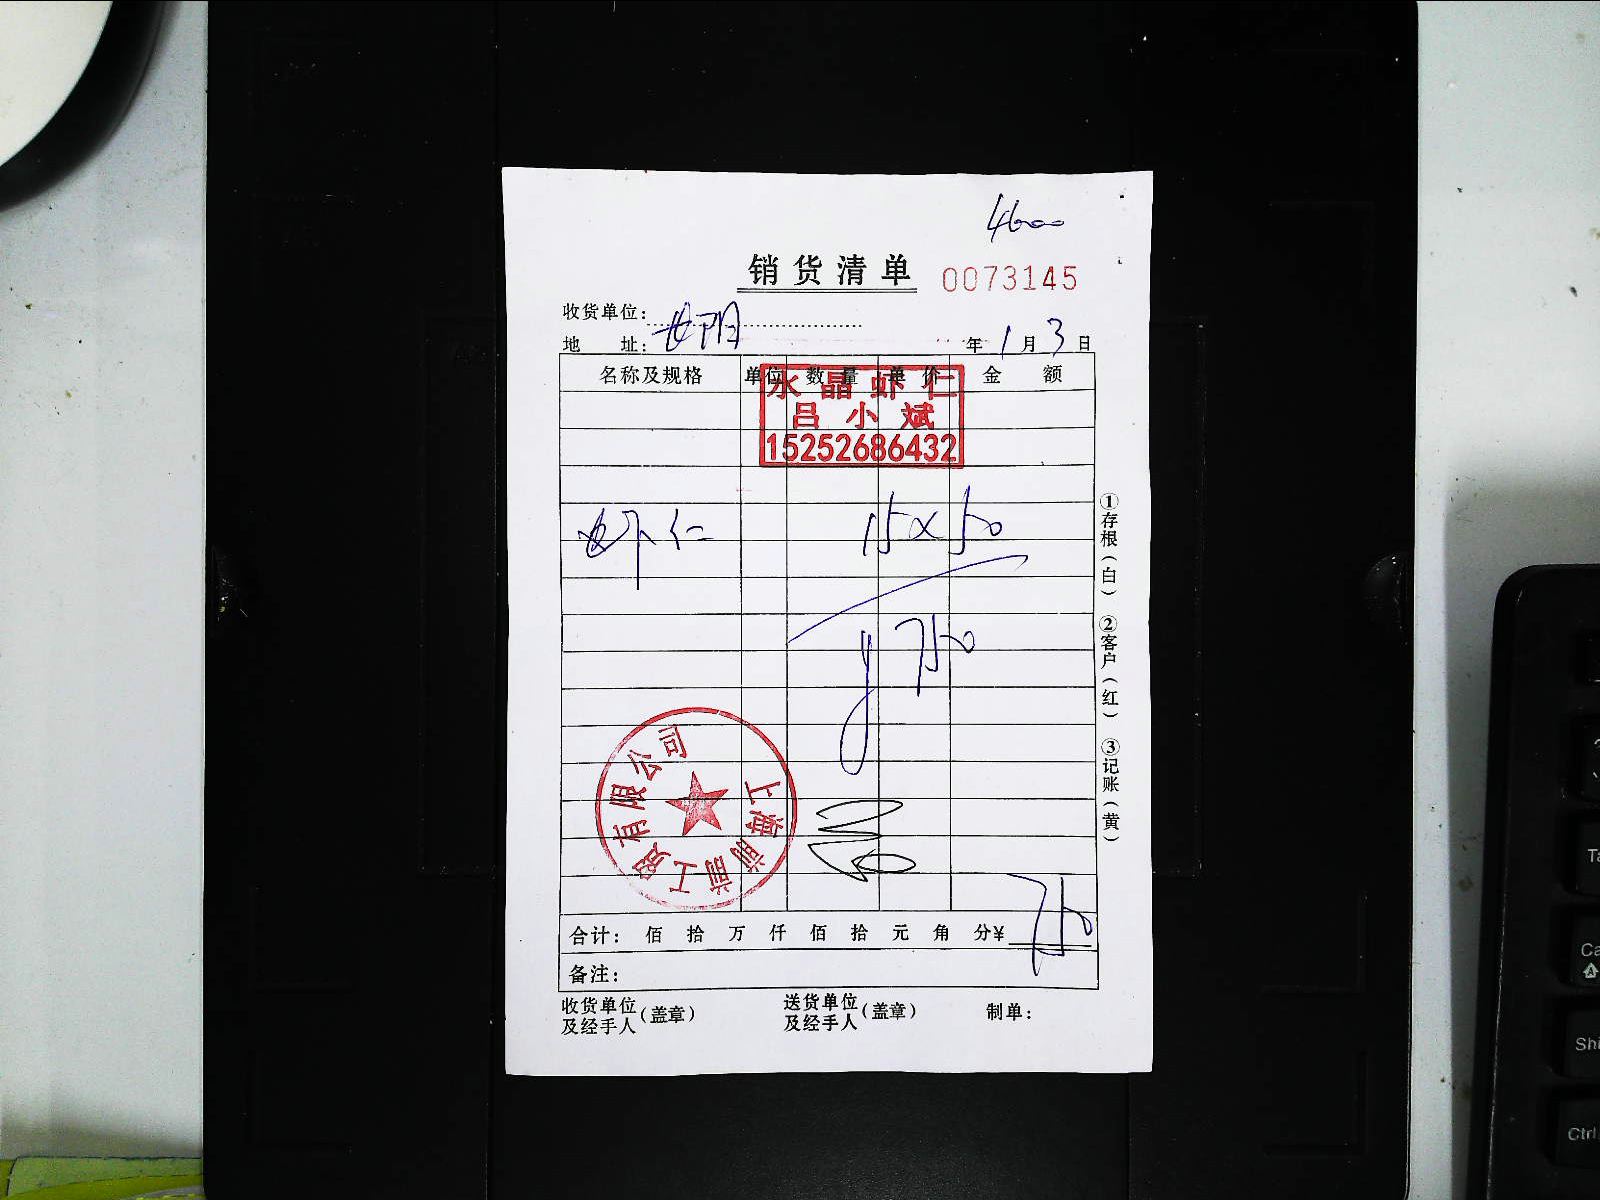 4600
销货清单 0073145
收货单位：
地 址： 年 1 月 3 日
名称及规格 单位 数量 单价 金 额
水晶虾仁
吕小斌
15252686432
虾仁 15×50
750
上海前前工贸有限公司
合计： 佰 拾 万 仟 佰 拾 元 角 分¥ 750
备注：
收货单位及经手人（盖章） 送货单位及经手人（盖章） 制单：
①存根（白） ②客户（红） ③记账（黄）
Ta
Ca
A
Shi
Ctrl